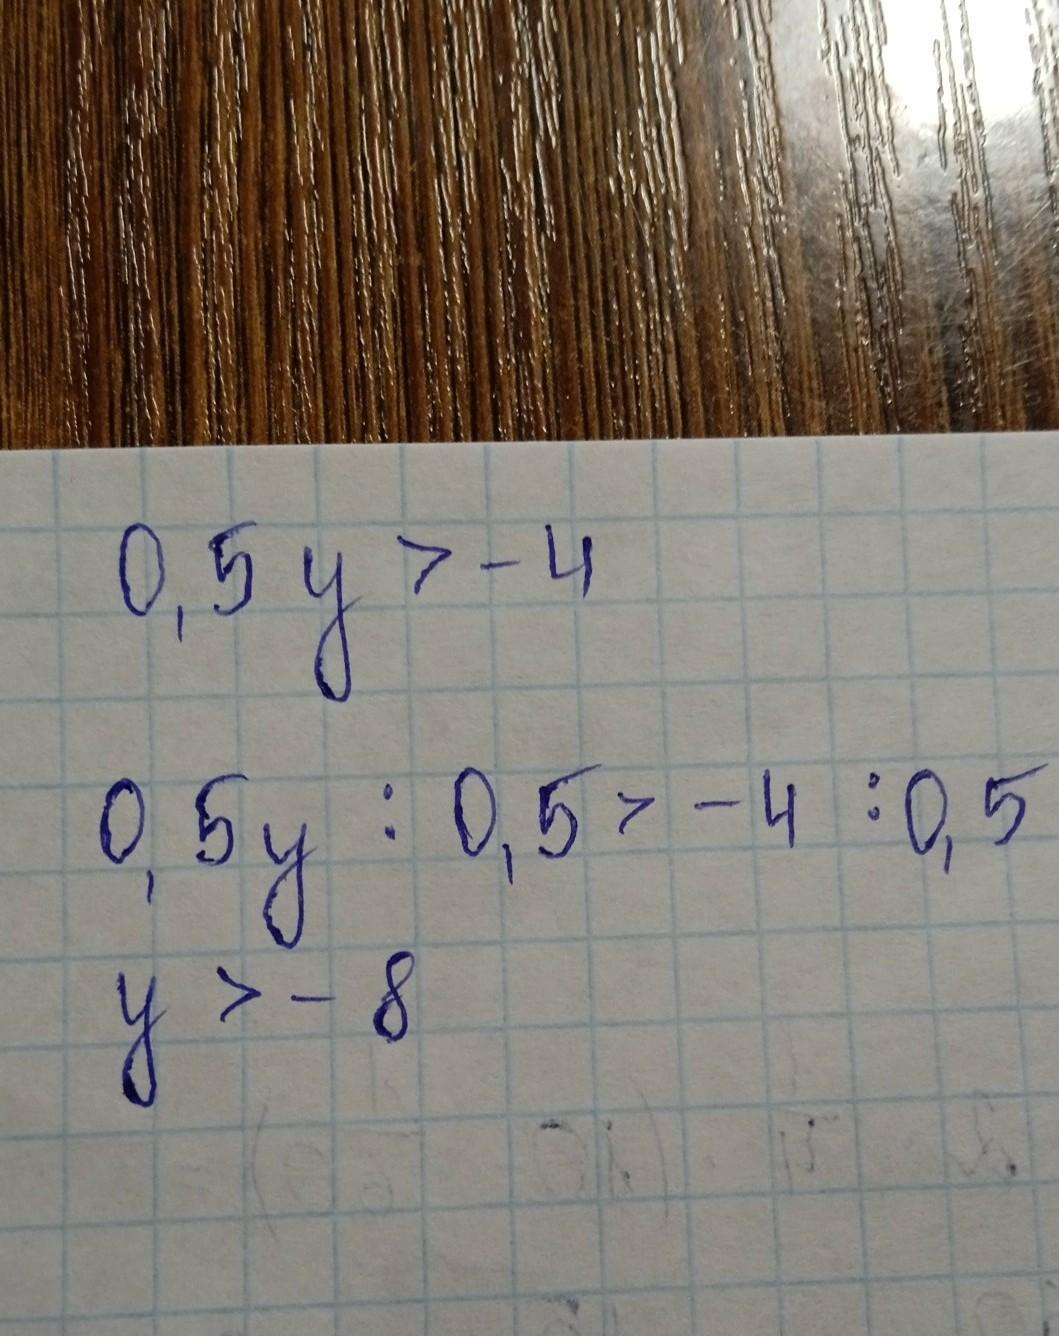 0,5 y > - 4
0,5y : 0,5 > - 4 : 0,5
y > - 8